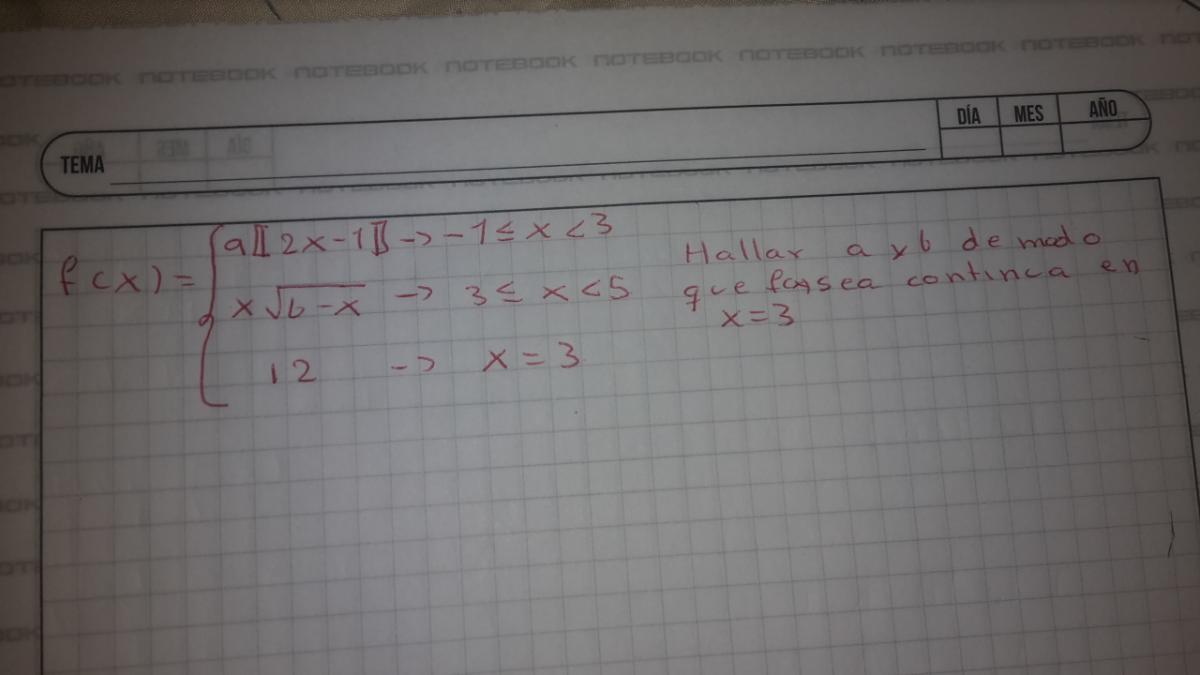 NOTEBOOK NOTEBOOK NOTEBOOK NOTEBOOK NOTEBOOK NOTEBOOK NOTEBOOK
TEMA
DÍA MES AÑO
f(x) = { a⟦2x-1⟧ -> -1 ≤ x < 3
x√(b-x) -> 3 ≤ x < 5
12 -> x = 3
Hallar a y b de modo
que f(x) sea continua en
x = 3